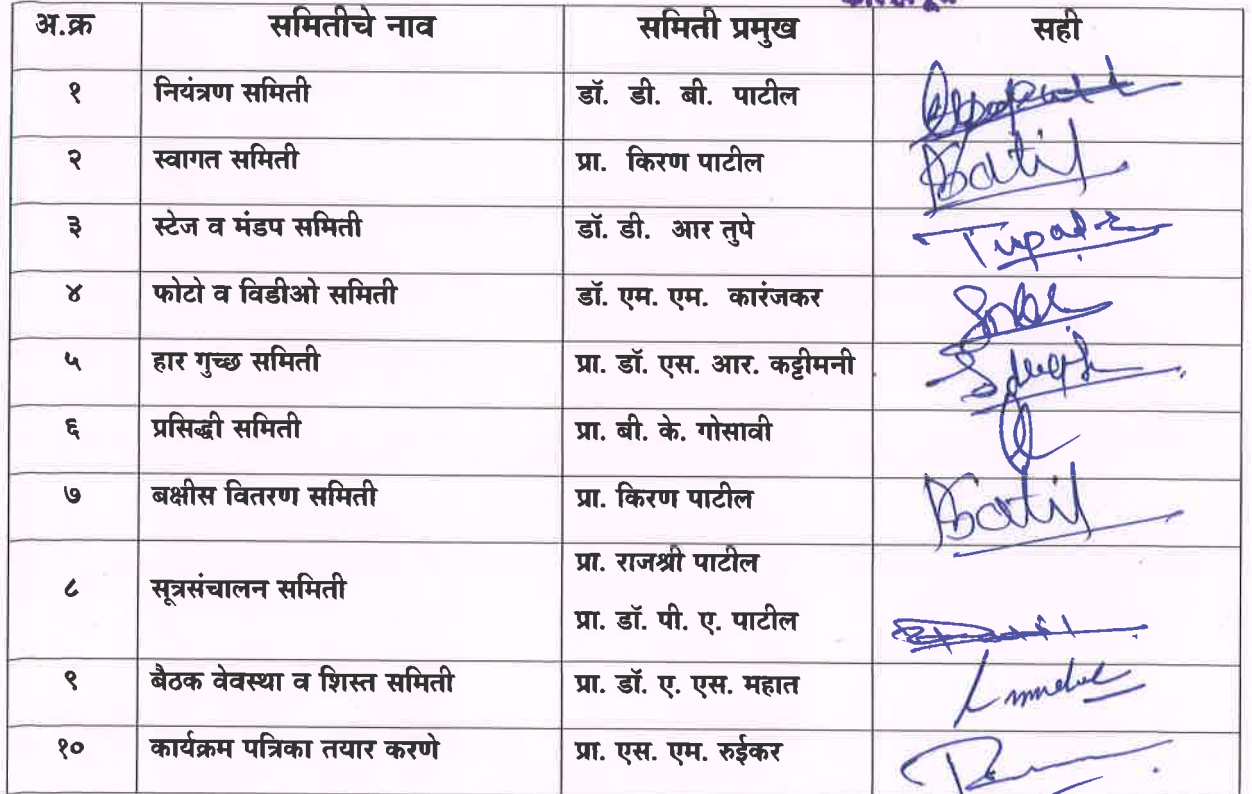 अ.क्र समितीचे नाव समिती प्रमुख सही
१ नियंत्रण समिती डॉ. डी. बी. पाटील
२ स्वागत समिती प्रा. किरण पाटील
३ स्टेज व मंडप समिती डॉ. डी. आर तुपे
४ फोटो व विडीओ समिती डॉ. एम. एम. कारंजकर
५ हार गुच्छ समिती प्रा. डॉ. एस. आर. कट्टीमनी
६ प्रसिद्धी समिती प्रा. बी. के. गोसावी
७ बक्षीस वितरण समिती प्रा. किरण पाटील
८ सूत्रसंचालन समिती प्रा. राजश्री पाटील
प्रा. डॉ. पी. ए. पाटील
९ बैठक वेवस्था व शिस्त समिती प्रा. डॉ. ए. एस. महात
१० कार्यक्रम पत्रिका तयार करणे प्रा. एस. एम. रुईकर